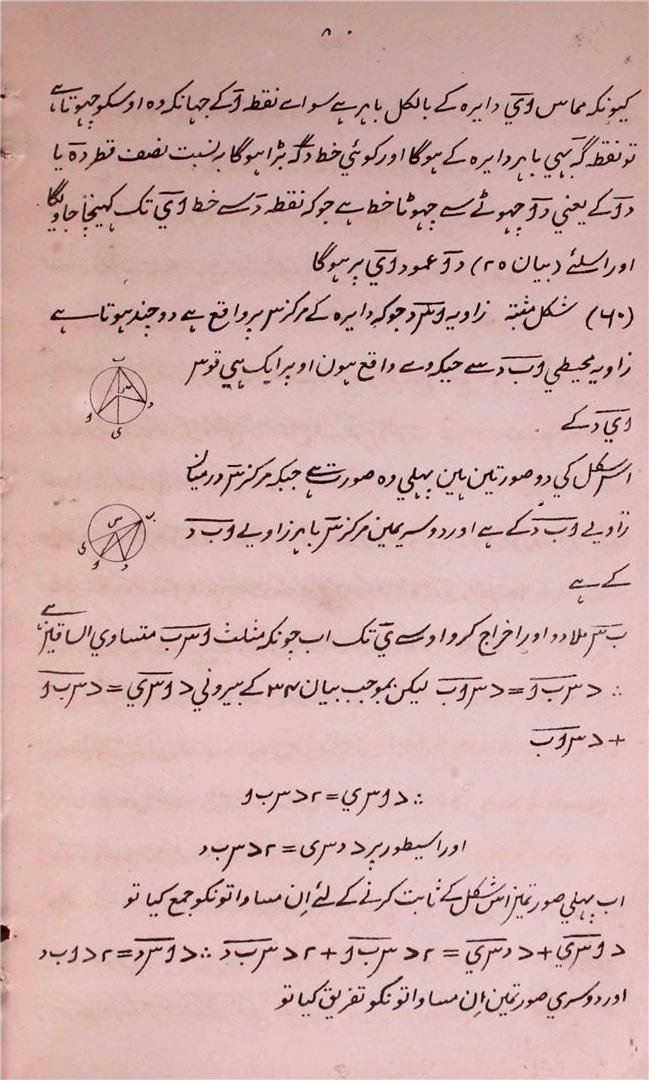 ۸۰
کیونکہ مماس ای دایرہ کے بالکل باہر ہے سواے نقطہ آ کے جہانکہ وہ اوسکو چہوتا ہے
تو نقطہ گ بہی باہر دایرہ کے ہوگا اور کوئی خط دگ بڑا ہوگا بہ نسبت نصف قطر دہ یا
دآ کے یعنی دآ چہوٹے سے چہوٹا خط ہے جو کہ نقطہ د سے خط ای تک کہینچا جاویگا
اور اسلئے (بیان ۲۵) دآ عمود ای پر ہوگا
(۶۰) شکل مثبتہ زاویہ اسد جو کہ دایرہ کے مرکز س پر واقع ہے دو چند ہوتا ہے
زاویہ محیطی ابد سے جبکہ وے واقع ہون اوپر ایک ہی قوس
ای د کے
اس شکل کی دو صورتین ہین پہلی وہ صورت ہے جبکہ مرکز س درمیان
زاویے ابد کے ہے اور دوسریمین مرکز س باہر زاویے ابد
کے ہے
ب س ملا دو اور اخراج کرو اوسے ی تک اب چونکہ مثلث اسب متساوی الساقین ہے
∴ > سبا = > ساب لیکن بموجب بیان ۳۴ کے بیرونی > اسی = > سبا
+ > ساب
∴ > اسی = ۲ > سبا
اور اسیطور پر > دسی = ۲ > سبد
اب پہلی صورتمین اس شکل کے ثابت کرنے کے لئے ان مساواتونکو جمع کیا تو
> اسی + > دسی = ۲ > سبا + ۲ > سبد ∴ > اسد = ۲ > ابد
اور دوسری صورتمین ان مساواتونکو تفریق کیا تو